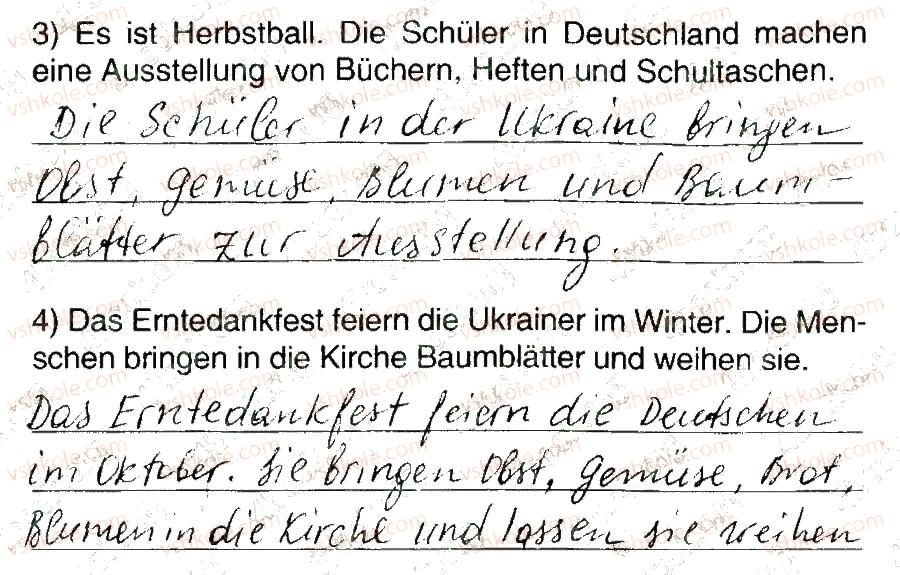 3) Es ist Herbstball. Die Schüler in Deutschland machen
eine Ausstellung von Büchern, Heften und Schultaschen.
Die Schüler in der Ukraine bringen
Obst, Gemüse, Blumen und Baum-
blätter zur Ausstellung.
4) Das Erntedankfest feiern die Ukrainer im Winter. Die Men-
schen bringen in die Kirche Baumblätter und weihen sie.
Das Erntedankfest feiern die Deutschen
im Oktober. Sie bringen Obst, Gemüse, Brot,
Blumen in die Kirche und lassen sie weihen